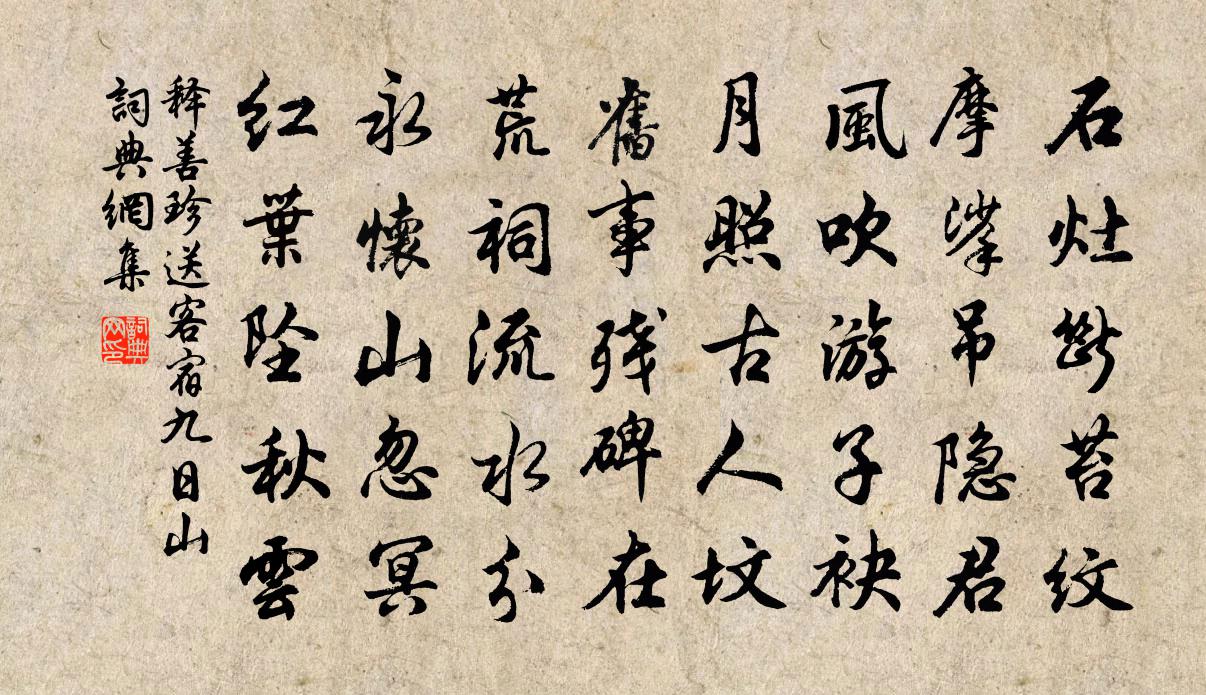 石灶斷苔纹
摩挲吊隐君
風吹游子袂
月照古人坟
舊事残碑在
荒祠流水分
永懷山忽冥
红葉坠秋雲
释善珍送客宿九日山
詞典網集
詞典网印